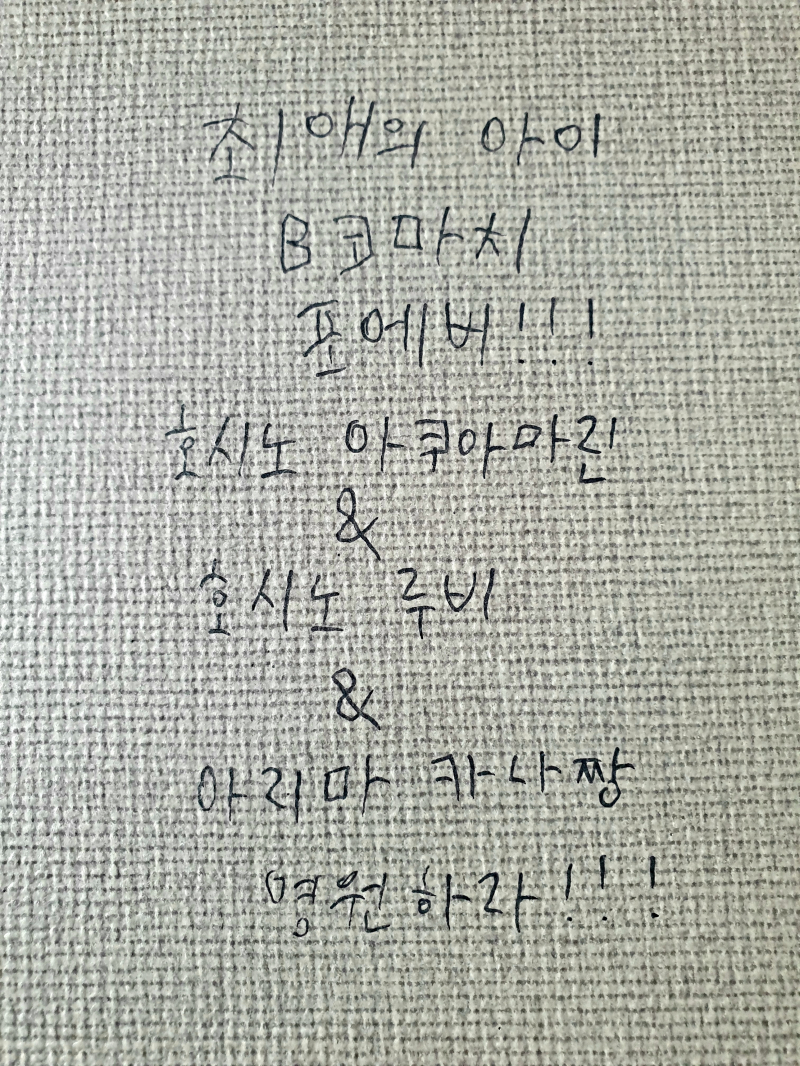 최애의 아이
B코마치
포에버!!!
호시노 아쿠아마린
&
호시노 루비
&
아리마 카나짱
영원하라!!!